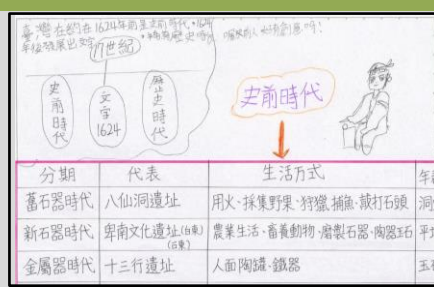 臺灣在約在1624年前是史前時代,1624
年後發展出文字,
17世紀
史前時代
文字1624
歷史時代
史前時代
分期 代表 生活方式
舊石器時代 八仙洞遺址 用火、採集野果、狩獵、捕魚、敲打石頭
新石器時代 卑南文化遺址(台東) 農業生活、畜養動物、磨製石器、陶器玉石
金屬器時代 十三行遺址 人面陶罐、鐵器